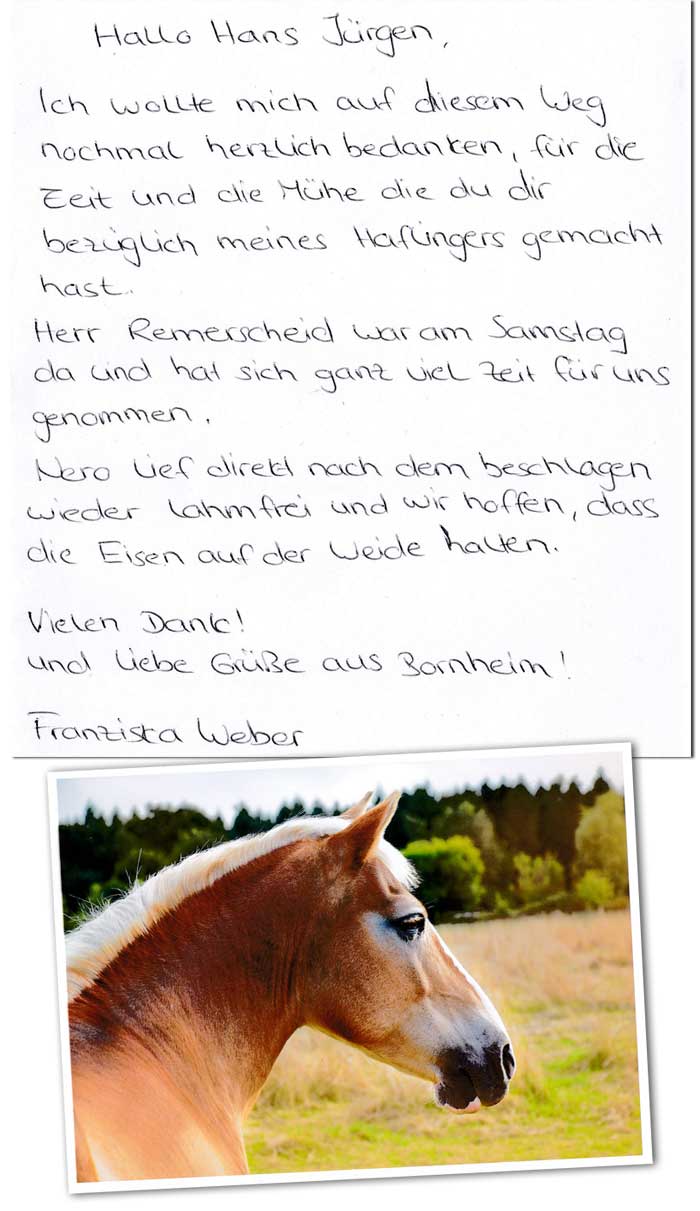 Hallo Hans Jürgen,
Ich wollte mich auf diesem Weg
nochmal herzlich bedanken, für die
Zeit und die Mühe die du dir
bezüglich meines Haflingers gemacht
hast.
Herr Remerscheid war am Samstag
da und hat sich ganz viel Zeit für uns
genommen.
Nero lief direkt nach dem beschlagen
wieder lahmfrei und wir hoffen, dass
die Eisen auf der Weide halten.
Vielen Dank!
und liebe Grüße aus Bornheim!
Franziska Weber